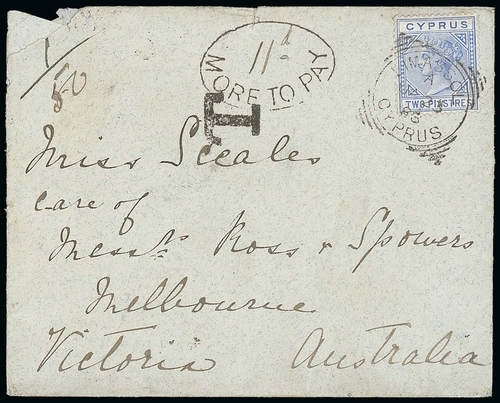 11d
MORE TO PAY
T
50
CYPRUS
TWO PIASTRES
LIMASSOL
A
CYPRUS
Miss Scales
care of
Messrs Ross & Spowers
Melbourne
Victoria Australia